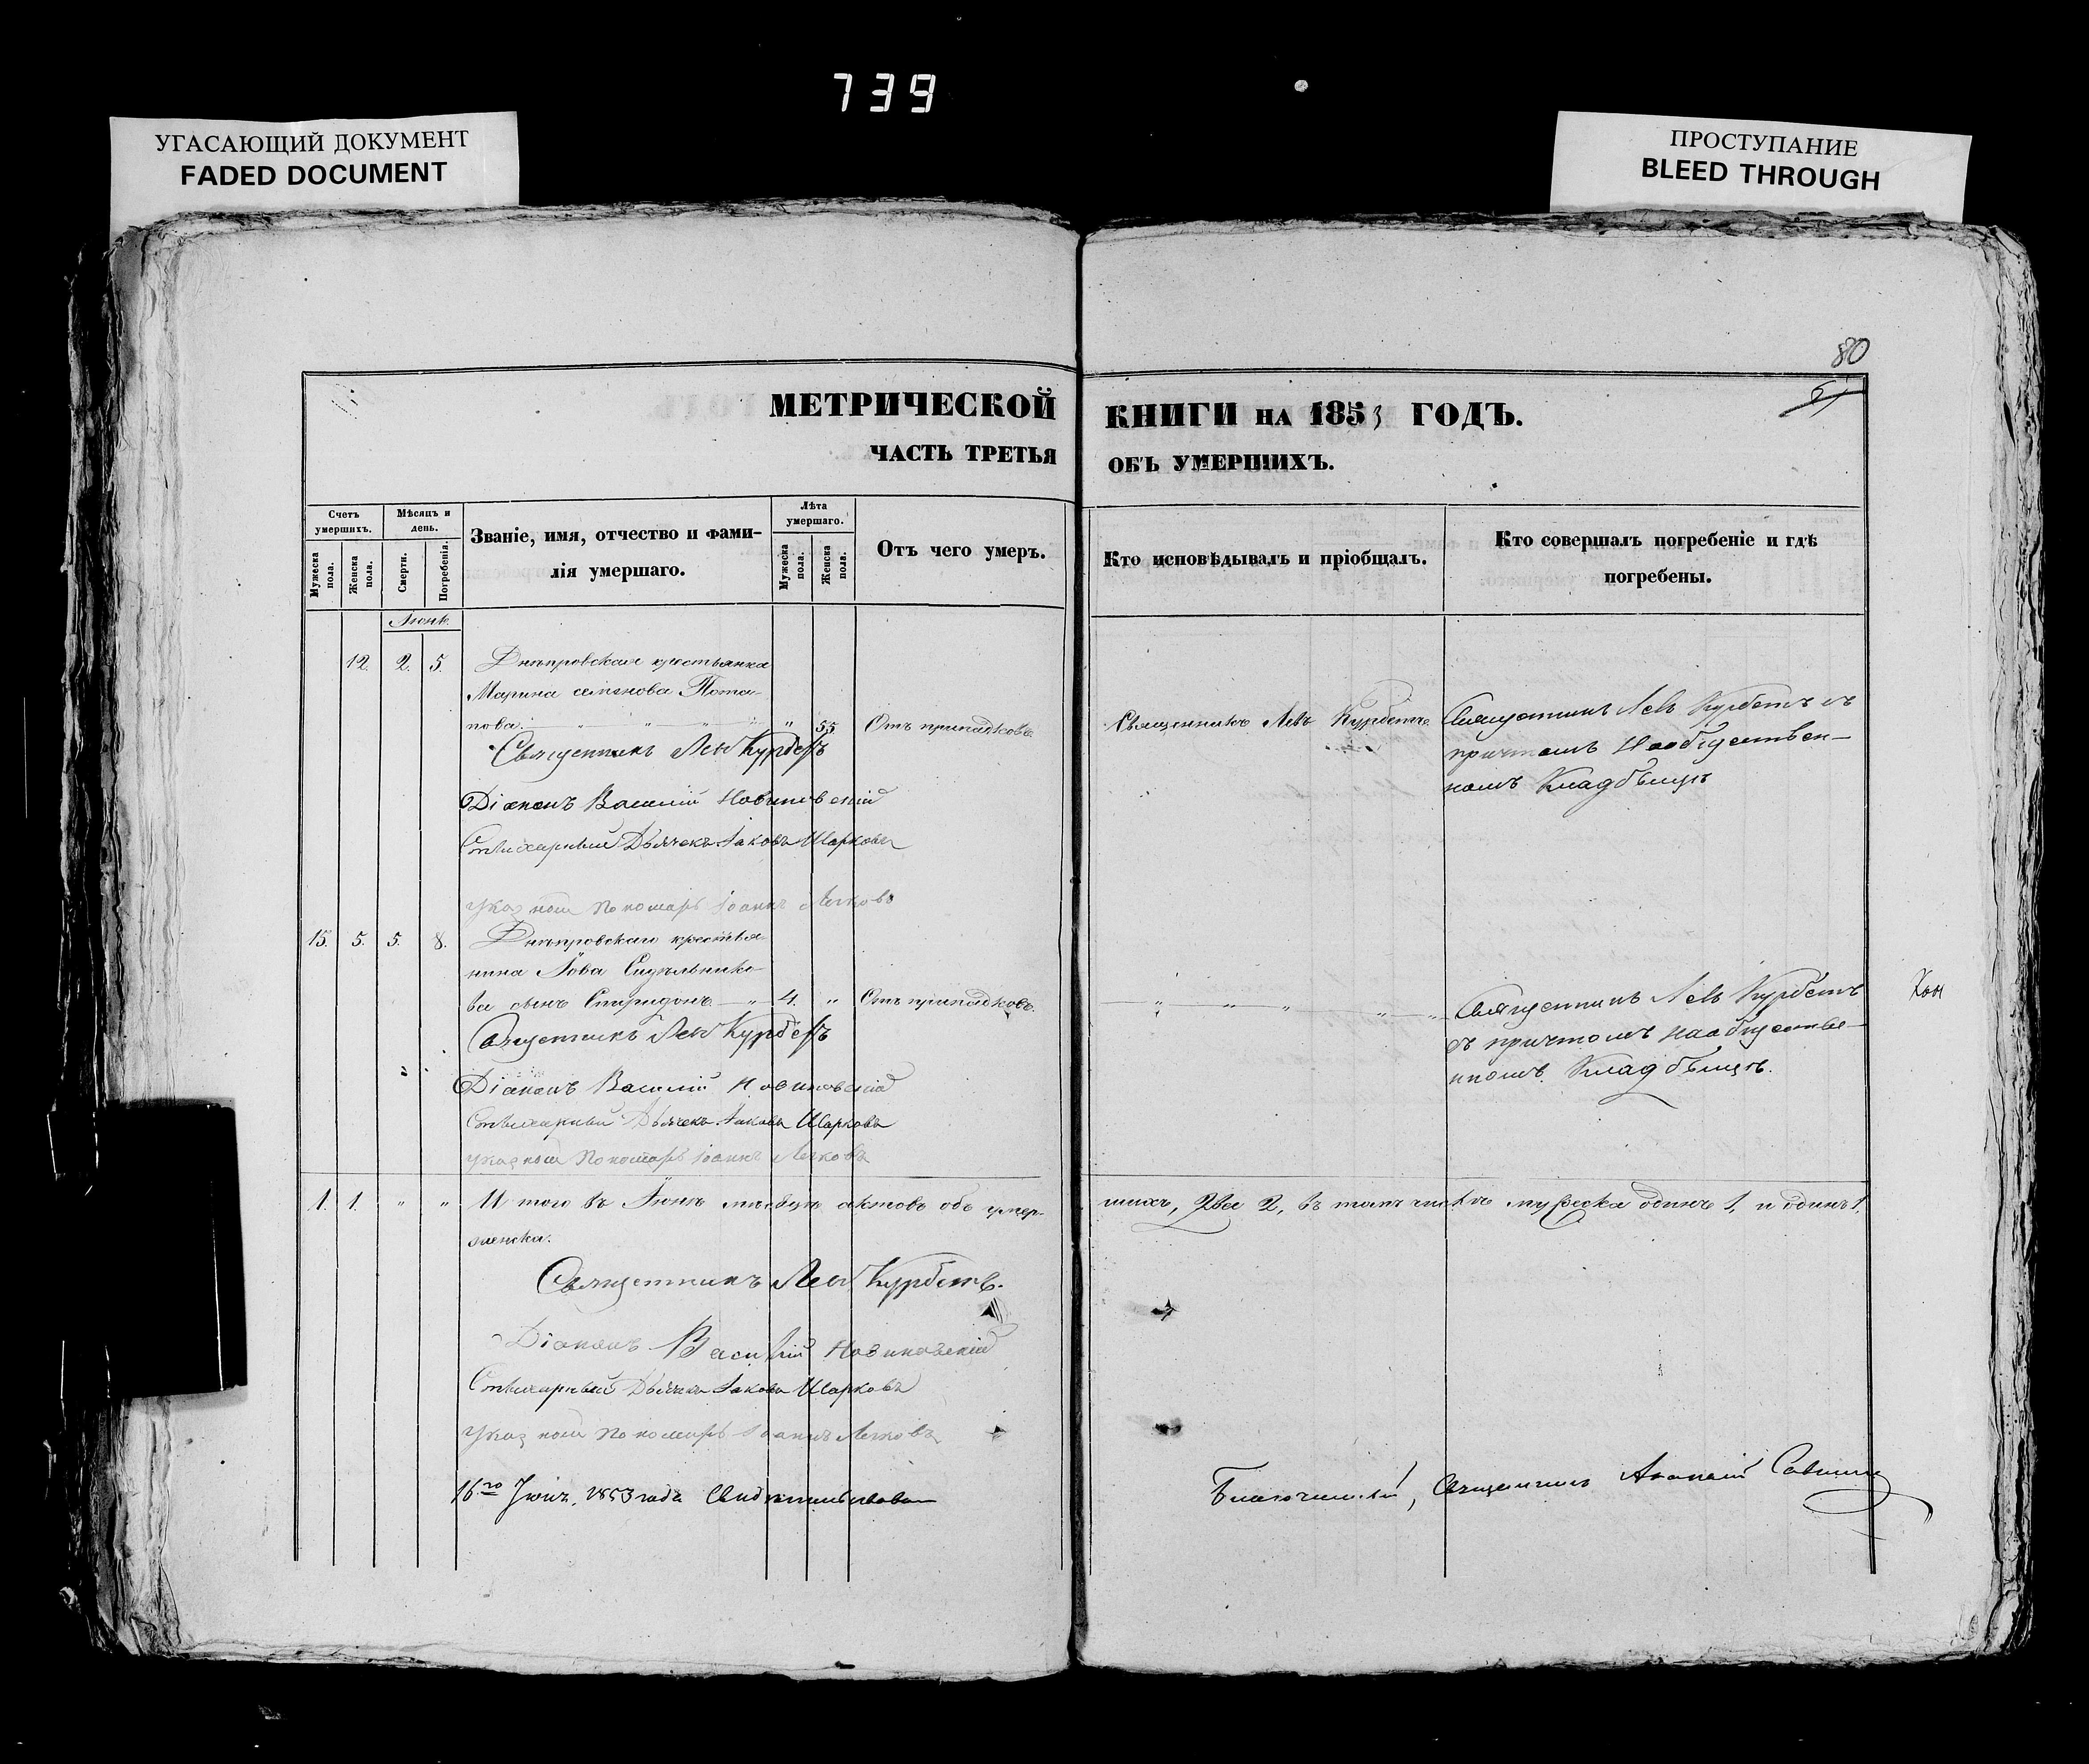 739
УГАСАЮЩИЙ ДОКУМЕНТ
FADED DOCUMENT
ПРОСТУПАНИЕ
BLEED THROUGH
80
МЕТРИЧЕСКОЙ КНИГИ НА 1853 ГОДЪ.
ЧАСТЬ ТРЕТЬЯ ОБЪ УМЕРШИХЪ.
Счетъ умершихъ.
Мужеска пола.
Женска пола.
Мѣсяцъ и день.
Смерти.
Погребенія.
Званіе, имя, отчество и фами-
лія умершаго.
Лѣта умершаго.
Мужеска пола.
Женска пола.
Отъ чего умеръ.
Кто исповѣдывалъ и пріобщалъ.
Кто совершалъ погребеніе и гдѣ
погребены.
Іюнь.
12. 2. 5. Днѣпровская крестьянка
Марина семенова Пота-
пова. " 55 Отъ припадковъ Священникъ Левъ Курбетъ
Священникъ Левъ Курбетъ съ
причтомъ На общественъ-
номъ Кладбѣщѣ
Священникъ Левъ Курбетъ
Діаконъ Василій Новиковскій
Стихарный Дьячекъ Іаковъ Шарковъ
Указной Пономарь Іоаннъ Легковъ
15. 5. 5. 8. Днѣпровскаго крестья-
нина Іова Сидѣльнико-
ва сынъ Спиридонъ " 4. " Отъ припадковъ. " " " " "
Священникъ Левъ Курбетъ
съ причтомъ на обществе-
нномъ Кладбѣщѣ.
Священникъ Левъ Курбетъ
Діаконъ Василій Новиковскій
Стихарный Дьячекъ Іаковъ Шарковъ
Указной Пономарь Іоаннъ Легковъ
1. 1. " " И того въ Іюнѣ мѣсяцѣ актовъ объ умер-
шихъ, Два 2, въ томъ числѣ мужеска одинъ 1, и одинъ 1,
женска.
Священникъ Левъ Курбетъ.
Діаконъ Василій Новиковскій
Стихарный Дьячекъ Іаковъ Шарковъ
Указной Пономарь Іоаннъ Легковъ
16го 1853 года Свидѣтельствовалъ
Благочинный, Священникъ